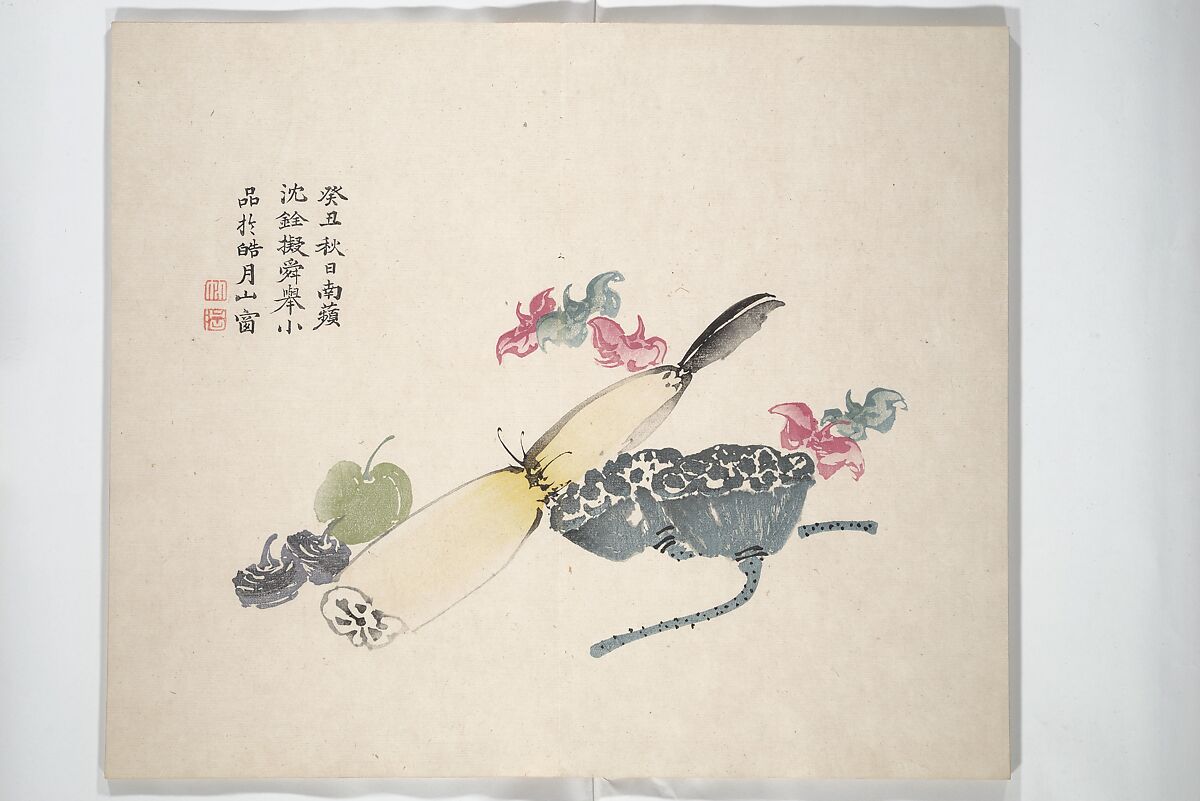 癸丑秋日南蘋
沈銓擬舜舉小
品於皓月山窗